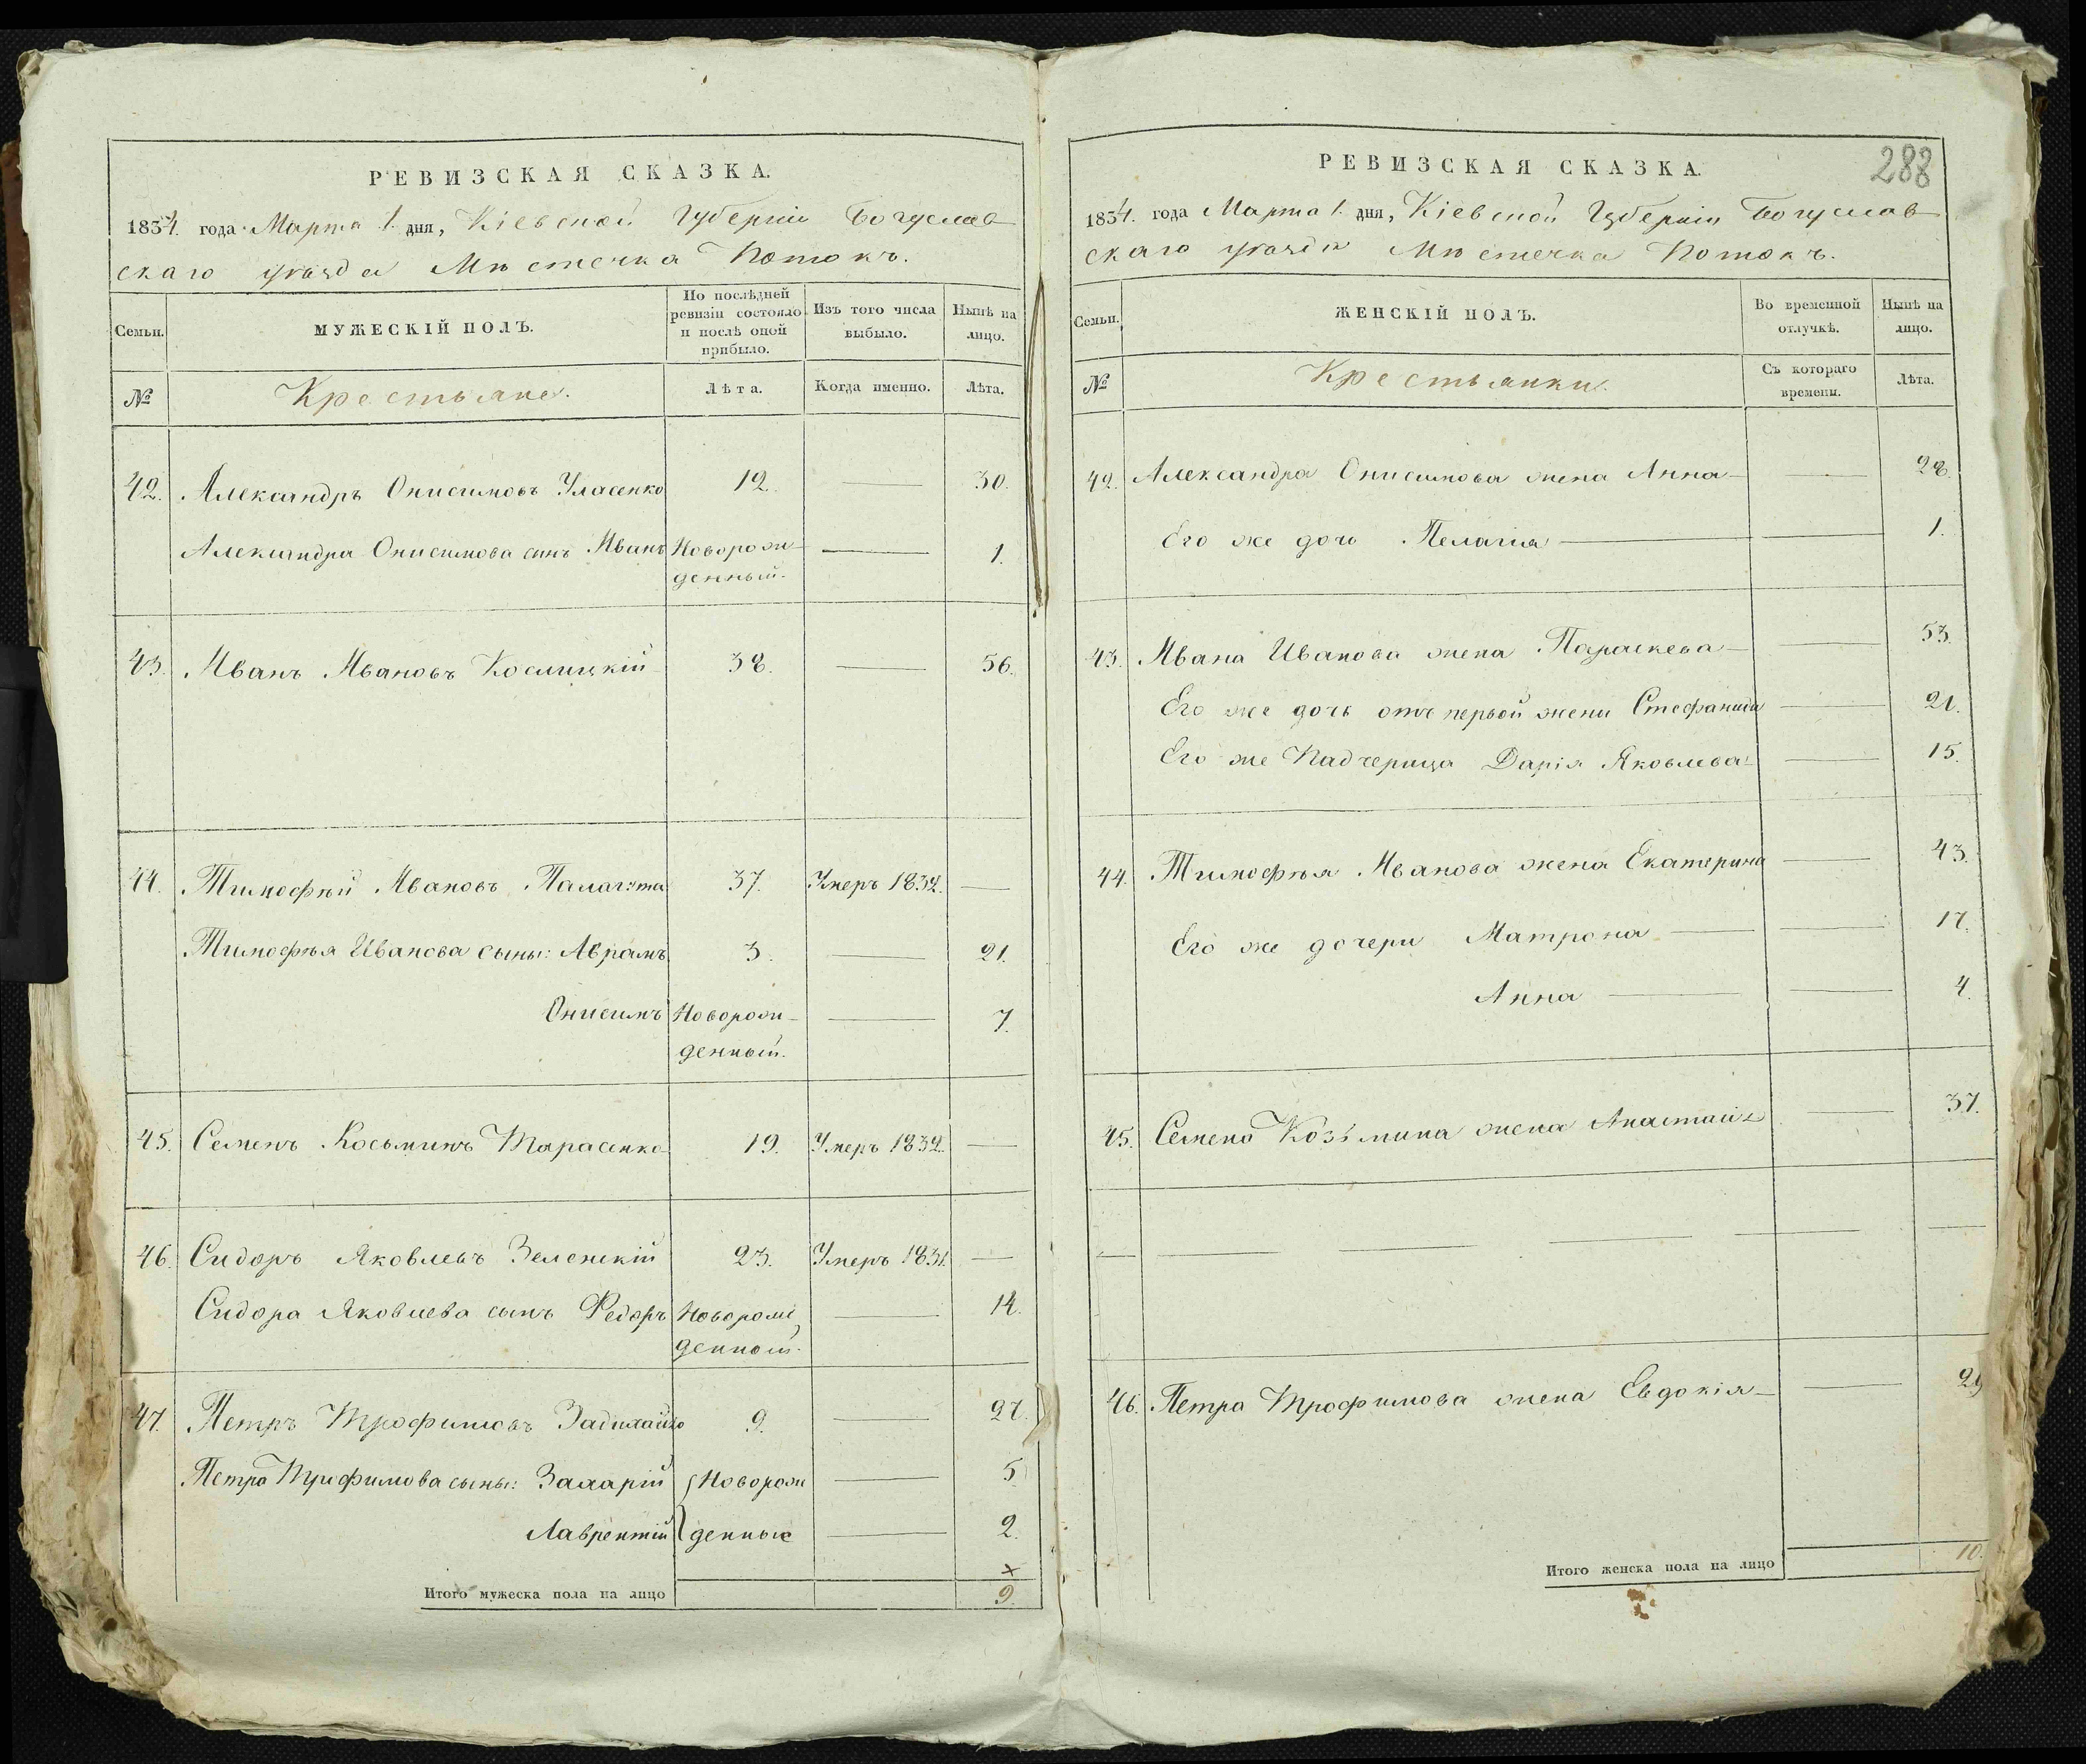 РЕВИЗСКАЯ СКАЗКА.
1834. года Марта 1. дня, Кіевской Губерніи Богуслав
скаго уѣзда Мѣстечка Потокъ.
Семьи.
МУЖЕСКІЙ ПОЛЪ.
По послѣдней
ревизіи состояло
и послѣ оной
прибыло.
Изъ того числа
выбыло.
Нынѣ на
лицо.
№
Крестьяне.
Лѣта.
Когда именно.
Лѣта.
42. Александръ Онисимовъ Уласенко 12. 30.
Александра Онисимова синъ Иванъ Новорож- 1.
денный.
43. Иванъ Ивановъ Кослицкій 38. 56.
44. Тимофѣй Ивановъ Палагута 37. Умеръ 1832.
Тимофѣя Иванова сыны: Аврамъ 3. 21.
Онисимъ Новорож- 7.
денный.
45. Семенъ Косьминъ Тарасенко 19. Умеръ 1832.
46. Сидоръ Яковлевъ Зеленскій 23. Умеръ 1831.
Сидора Яковлева сынъ Федоръ Новорож 14.
денный.
47. Петръ Трофимовъ 9. 27.
Петра Трифимова сыны: Захарій Новорож 5.
Лаврентій денные 2.
×
Итого мужеска пола на лицо 9.
288
РЕВИЗСКАЯ СКАЗКА.
1834. года Марта 1. дня, Кіевской Губерніи Богуслав
скаго уѣзда Мѣстечка Потокъ.
Семьи.
ЖЕНСКІЙ ПОЛЪ.
Во временной
отлучкѣ.
Нынѣ на
лицо.
№
Крестьянки.
Съ котораго
времени.
Лѣта.
42. Александра Онисимова жена Анна 28.
Его же дочь Пелагія 1.
43. Ивана Иванова жена Параскева 53.
Его же дочь отъ первой жени Стефанида 21.
Его же Падчерица Дарія Яковлева 15.
44. Тимофѣя Иванова жена Екатерина 43.
Его же дочери Матрона 17.
Анна 4.
45. Семена Козьмина жена Анастасія 37.
46. Петра Трофимова жена Евдокія 29
Итого женска пола на лицо 10.